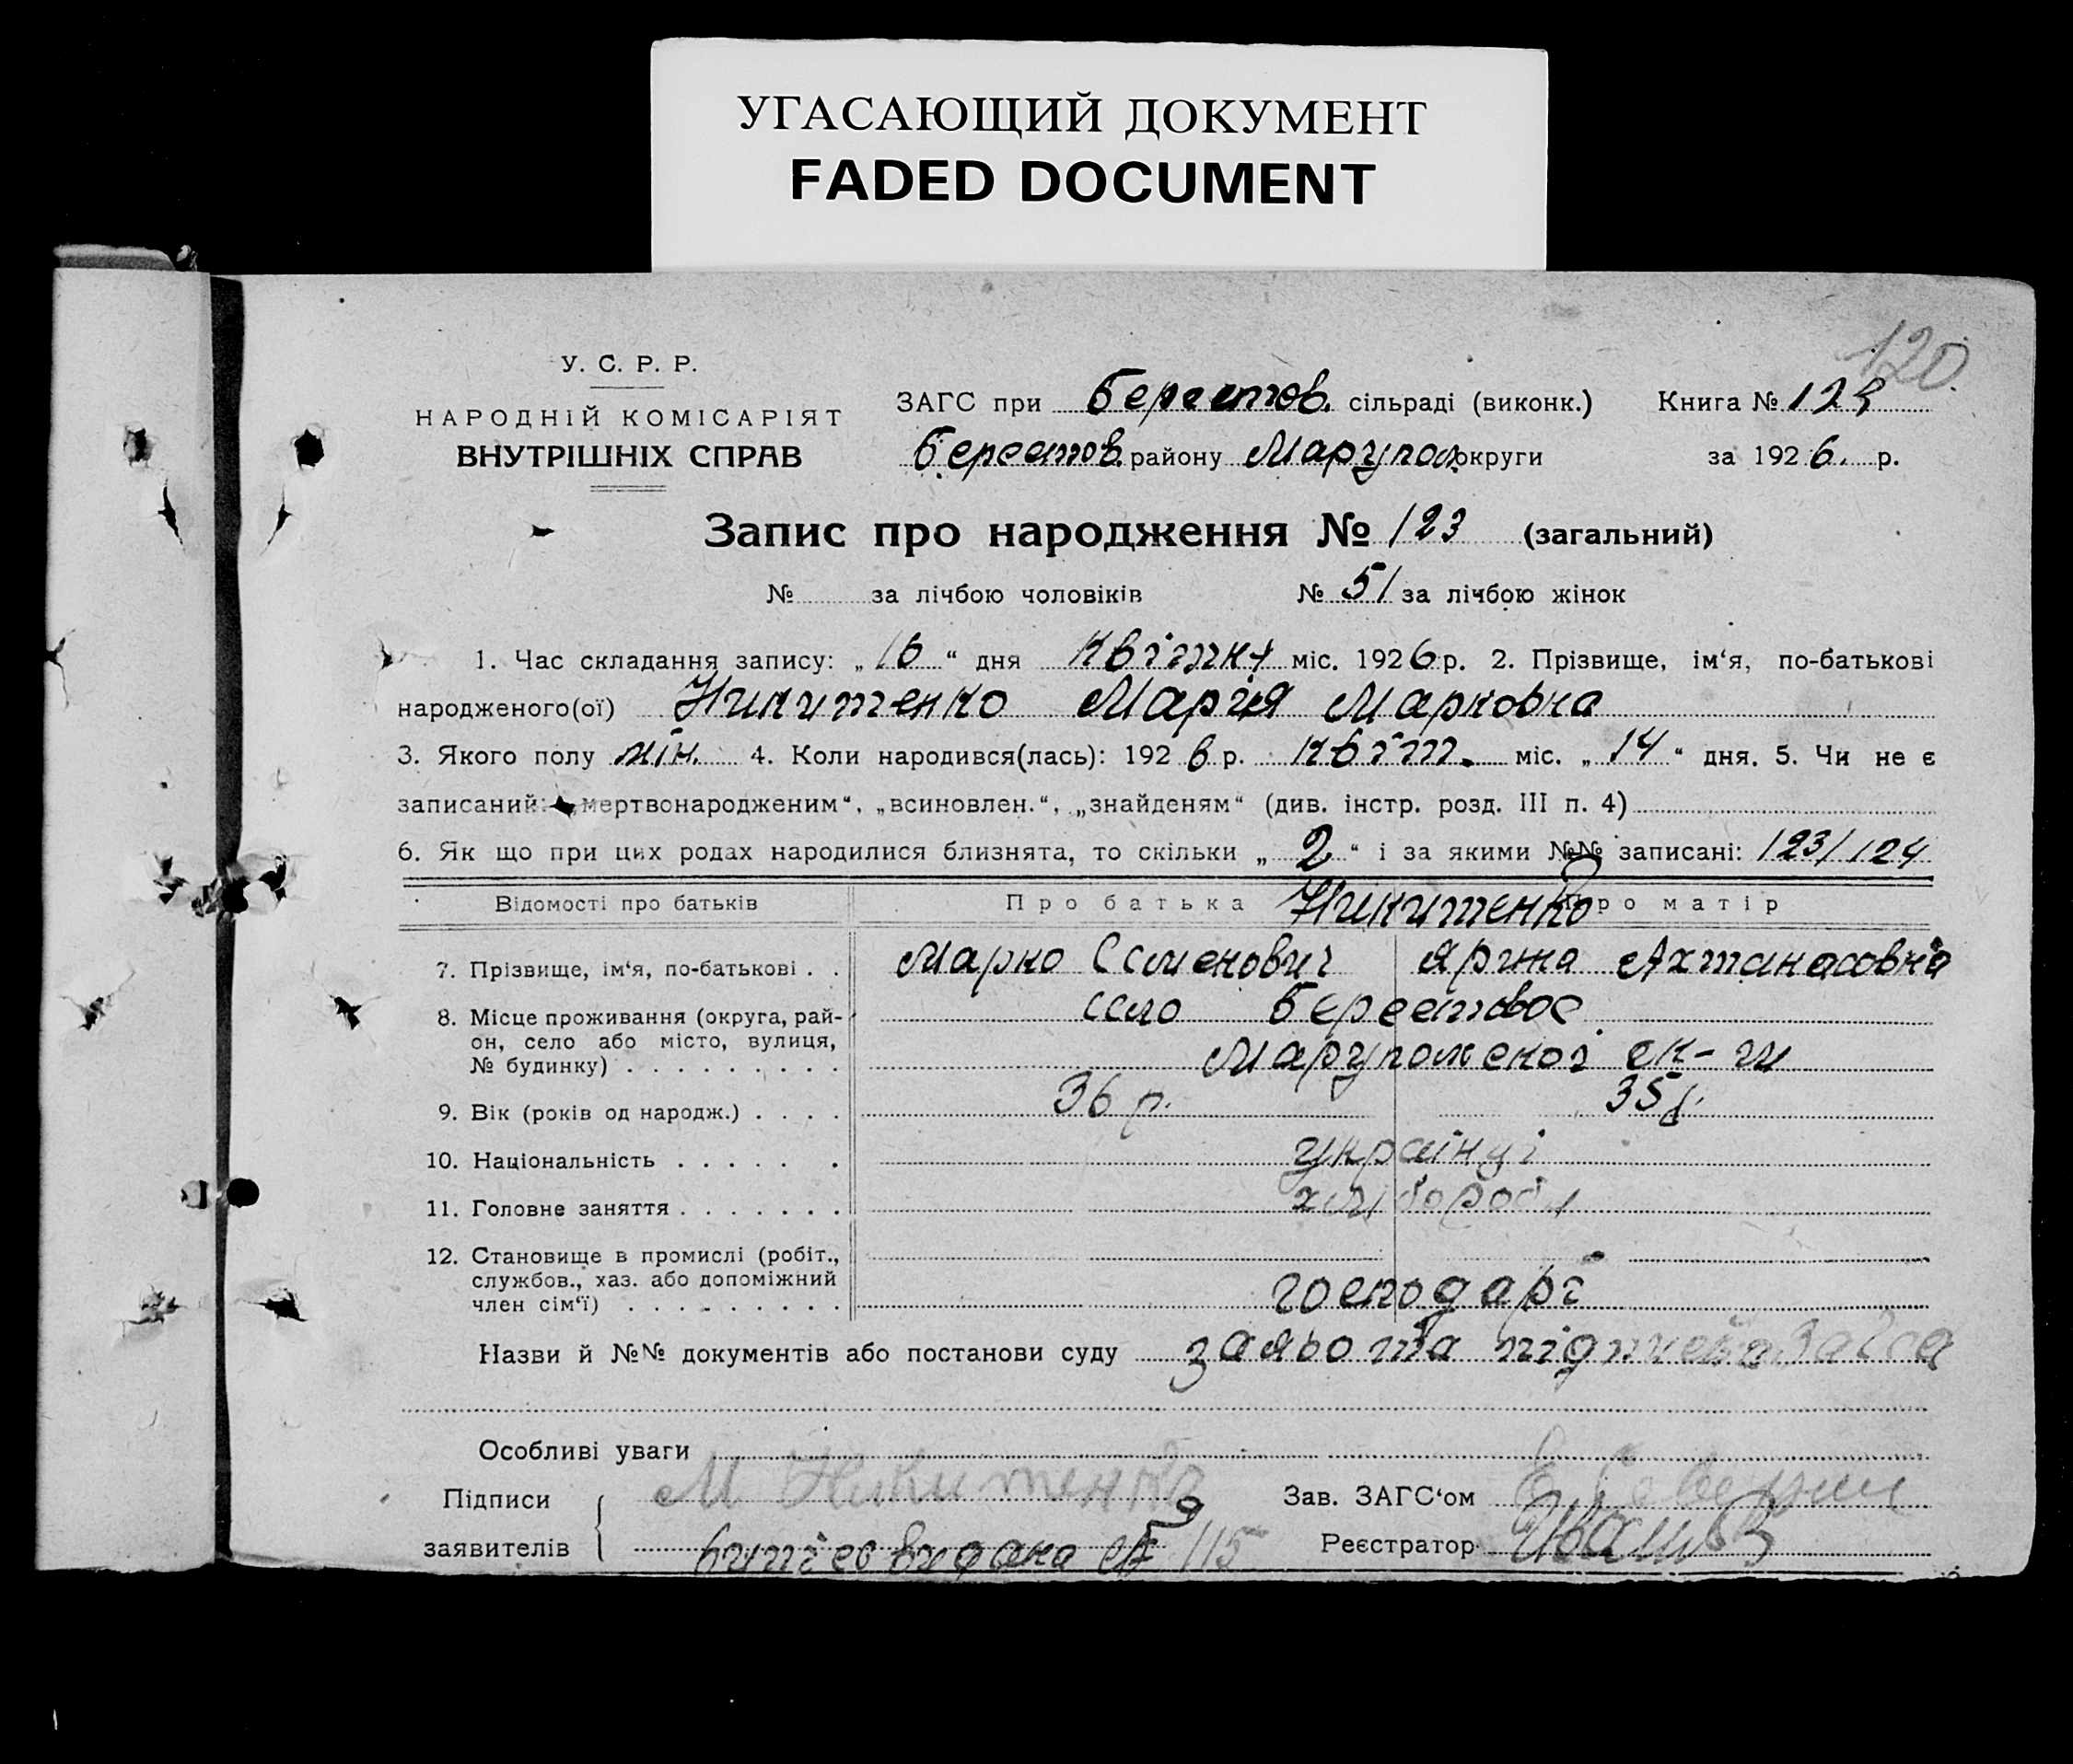 УГАСАЮЩИЙ ДОКУМЕНТ
FADED DOCUMENT
120
У. С. Р. Р.
НАРОДНІЙ КОМІСАРІЯТ
ВНУТРІШНІХ СПРАВ
ЗАГС при Берестов. сільраді (виконк.) Книга №
Берестов. району Марупол. округи за 1926. р.
Запис про народження № 123 (загальний)
№ за лічбою чоловіків № 51 за лічбою жінок
1. Час складання запису: „16“ дня квітня міс. 1926 р. 2. Прізвище, ім‘я, по-батькові
народженого(ої) Никитенко Марія Марковна
3. Якого полу жін. 4. Коли народився(лась): 1926 р. квіт. міс. „14“ дня. 5. Чи не є
записаний: „мертвонародженим“, „всиновлен.“, „знайденям“ (див. інстр. розд. III п. 4)
6. Як що при цих родах народилися близнята, то скільки „2“ і за якими №№ записані: 123/124
Відомості про батьків Про батька Никитенко Про матір
7. Прізвище, ім‘я, по-батькові . . Марко Семенович Ярина Ахтанасовна
8. Місце проживання (округа, рай- село Берестовое
он, село або місто, вулиця, Марупольскоі ок-ги
№ будинку) . . . . . . . . .
9. Вік (років од народж.) . . . . 36 р. 35 р.
10. Національність . . . . . . українці
11. Головне заняття . . . . . . . хлібороби
12. Становище в промислі (робіт.,
службов., хаз. або допоміжний
член сім‘ї) . . . . . . . . . господарі
Назви й №№ документів або постанови суду заява та
Особливі уваги
Підписи М Никитенко Зав. ЗАГС‘ом
заявителів видана 115 Реєстратор